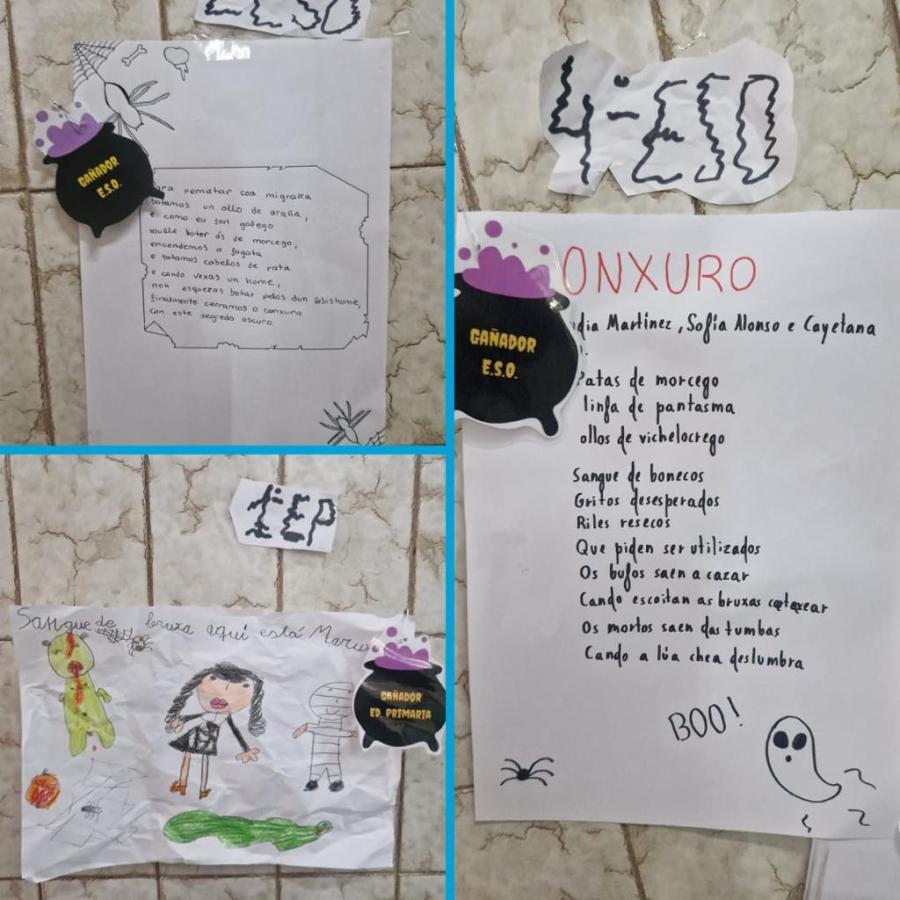 2ESO
GAÑADOR
E.S.O.
Para rematar coa migraña
botamos un ollo de araña,
e como eu son galego
voulle botar ás de morcego,
encendemos a fogata
e botamos cabelos de rata
e cando vexas un home,
non esquezas botar pelos dun lobishome,
finalmente cerramos o conxuro
con este segredo oscuro.
1ºEP
Sangue de bruxa aquí está Maru
GAÑADOR
ED. PRIMARIA
4º ESO
ONXURO
dia Martínez, Sofía Alonso e Cayetana
GAÑADOR
E.S.O.
Patas de morcego
linfa de pantasma
ollos de vichelocrego
Sangue de bonecos
Gritos desesperados
Riles resecos
Que piden ser utilizados
Os bufos saen a cazar
Cando escoitan as bruxas
Os mortos saen das tumbas
Cando a lúa chea deslumbra
BOO!